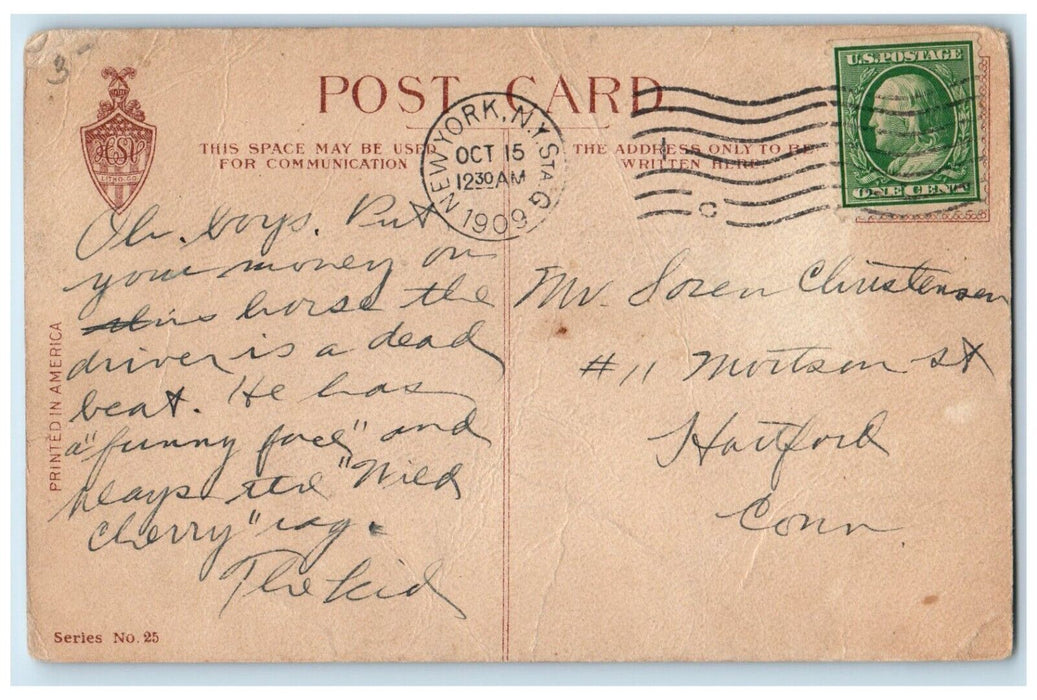 3-
POST CARD
THIS SPACE MAY BE USED
FOR COMMUNICATION
THE ADDRESS ONLY TO BE
WRITTEN HERE
U.S. POSTAGE
ONE CENT
NEW YORK, N.Y. STA G
OCT 15
1230 AM
1909
C
HSV
LITHO. CO.
Oh. boys. Put
your money on
this horse the
driver is a dead
beat. He has
a "funny face" and
plays the "Wild
Cherry" rag.
The Kid
Mr. Soren Christensen
#11 Mortson st
Hartford
Conn
PRINTED IN AMERICA
Series No. 25